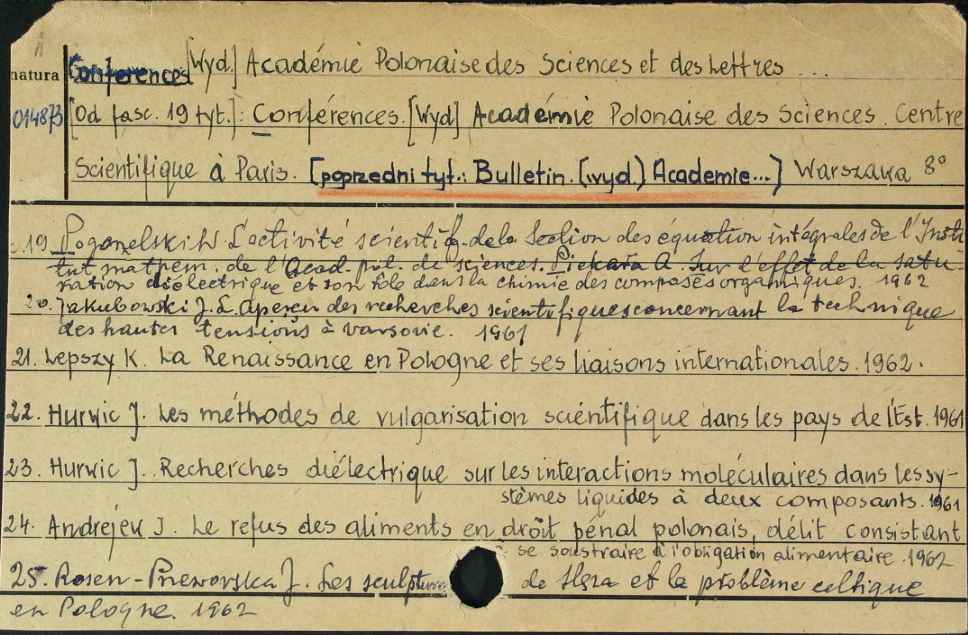 Conferences [Wyd.] Académie Polonaise des Sciences et des Lettres ...
natura
014873 [Od fasc. 19 tyt.]: Conférences. [Wyd] Académie Polonaise des Sciences. Centre
Scientifique à Paris. [poprzedni tyt.: Bulletin. (wyd.) Academie...] Warszawa 8°
19 Pogorzelski W L'activité scientif. de la Section des équation intégrales de l'Insti
tut mathém. de l'Acad. pol. de sciences. Piekara A. Sur l'effet de la satu-
ration diélectrique et son rôle dans la chimie des composés organiques. 1962
20. Jakubowski J.L. Aperçu des recherches scientifiques concernant la technique
des hautes tensions à Varsovie. 1961
21. Lepszy K. La Renaissance en Pologne et ses liaisons internationales. 1962.
22. Hurwic J. Les méthodes de vulgarisation scientifique dans les pays de l'Est. 1961
23. Hurwic J. Recherches diélectrique sur les interactions moléculaires dans les sy-
stèmes liquides à deux composants. 1961
24. Andrejew J. Le refus des aliments en droit pénal polonais, délit consistant
à se soustraire à l'obligation alimentaire. 1962
25. Rosen-Przeworska J. Les sculptures de Ślęża et le problème celtique
en Pologne. 1962